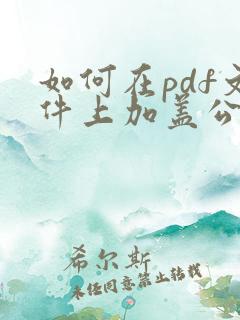 如何在pdf文
件上加盖公
希尔斯
未经同意禁止转载